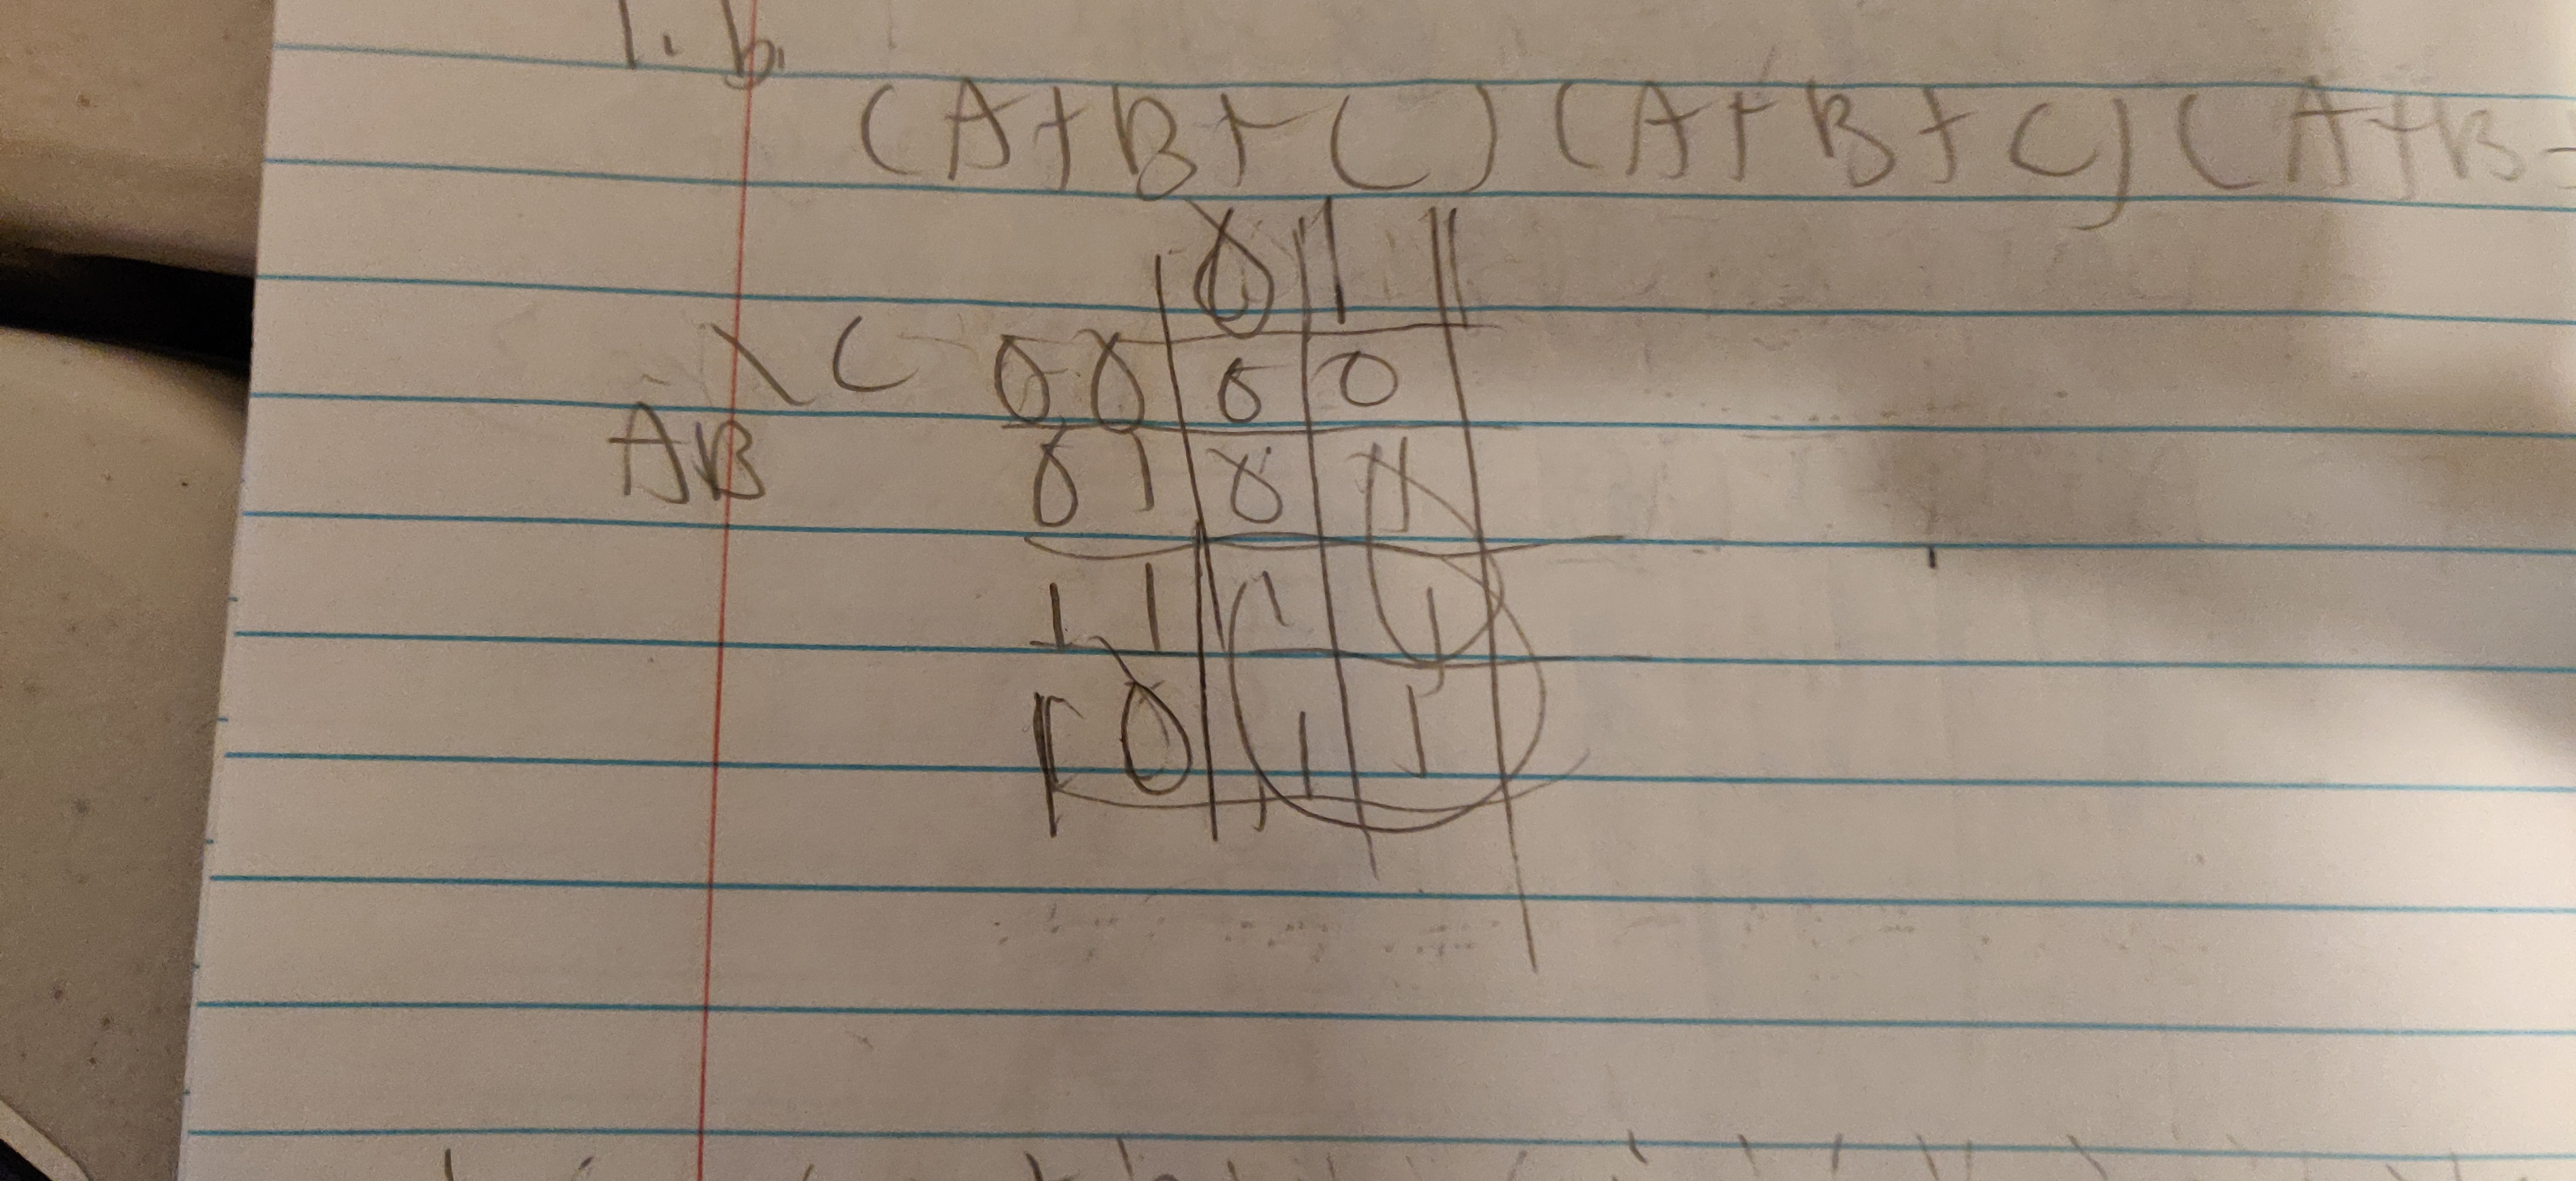 1. b.
(A+B+C) (A+B+C) (A+B
0 1
\ C 00 0 0
AB 01 0 1
11 1 1
10 1 1